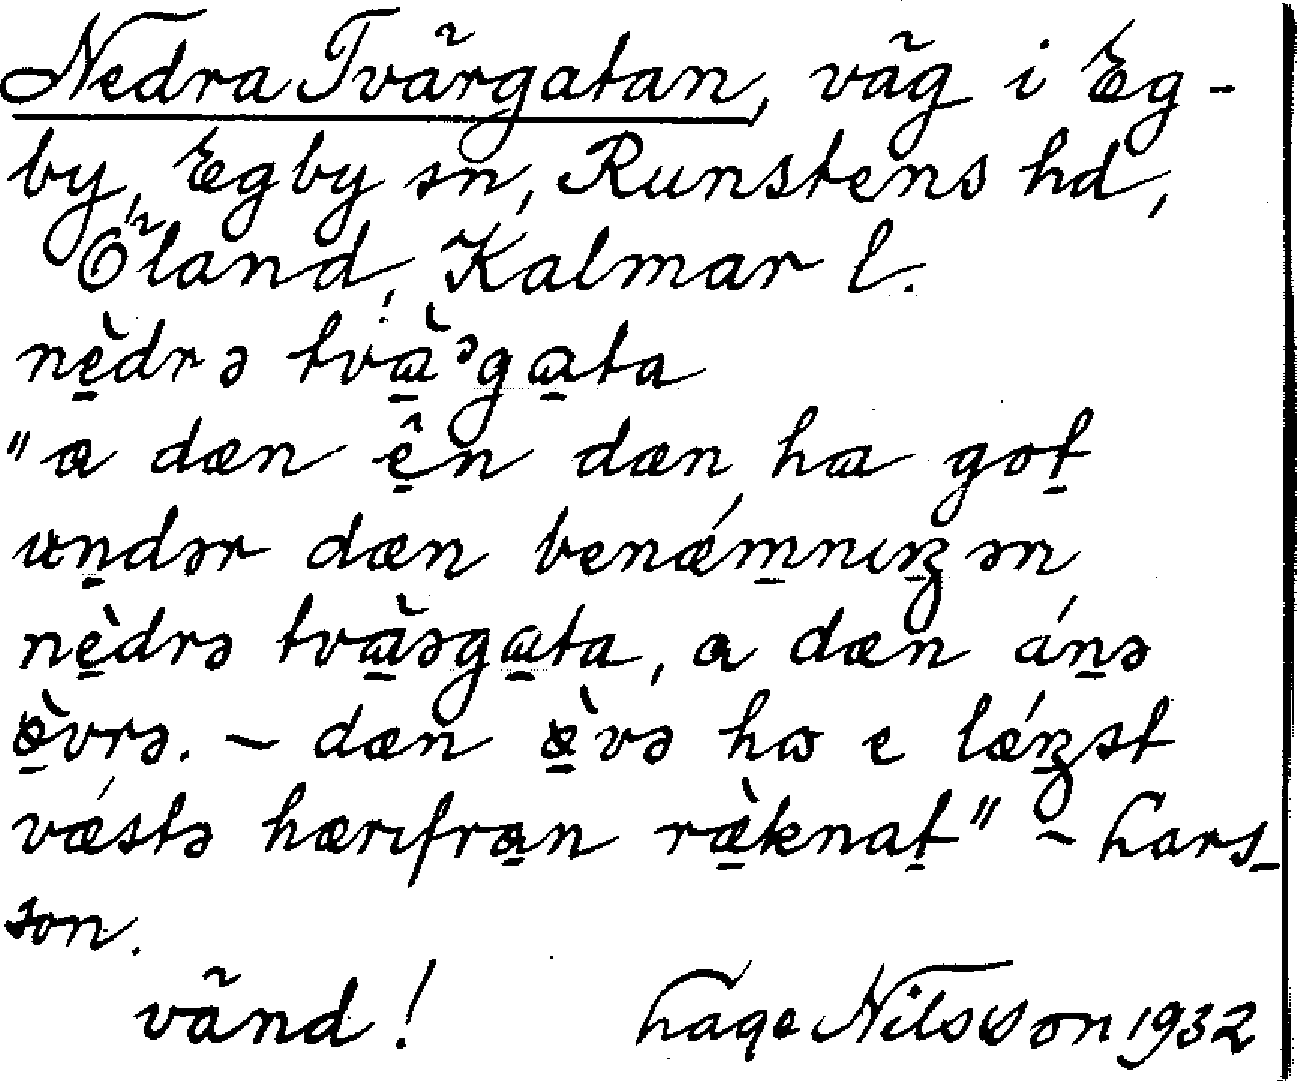 Nedra Tvärgatan, väg i Eg-
by, Egby sn, Runstens hd,
Öland, Kalmar l.
nè̱drə tvɑ̱̀ᵊgɑ̱ta
"a dæn ê̱n dæn ha got̠
un̠dər dæn benǽm̠nıŋən
nè̱drə tvɑ̱̀əgɑ̱ta, a dæn án̠ə
ø̱̀vrə. – dæn ø̱̀və hɷ e lǽŋst
vǽstə hærıfra̱n ræ̱̀knat̠" – Lars-
son.
vänd! Lage Nilsson 1932